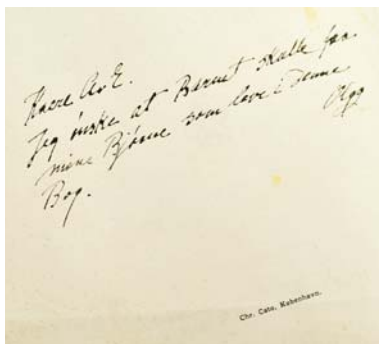 Kaere A. E.
Jeg ønske at Barnet skulle faa
mine Bjørne som leve i Denne
Bog.
Olga
Chr. Cato, København.